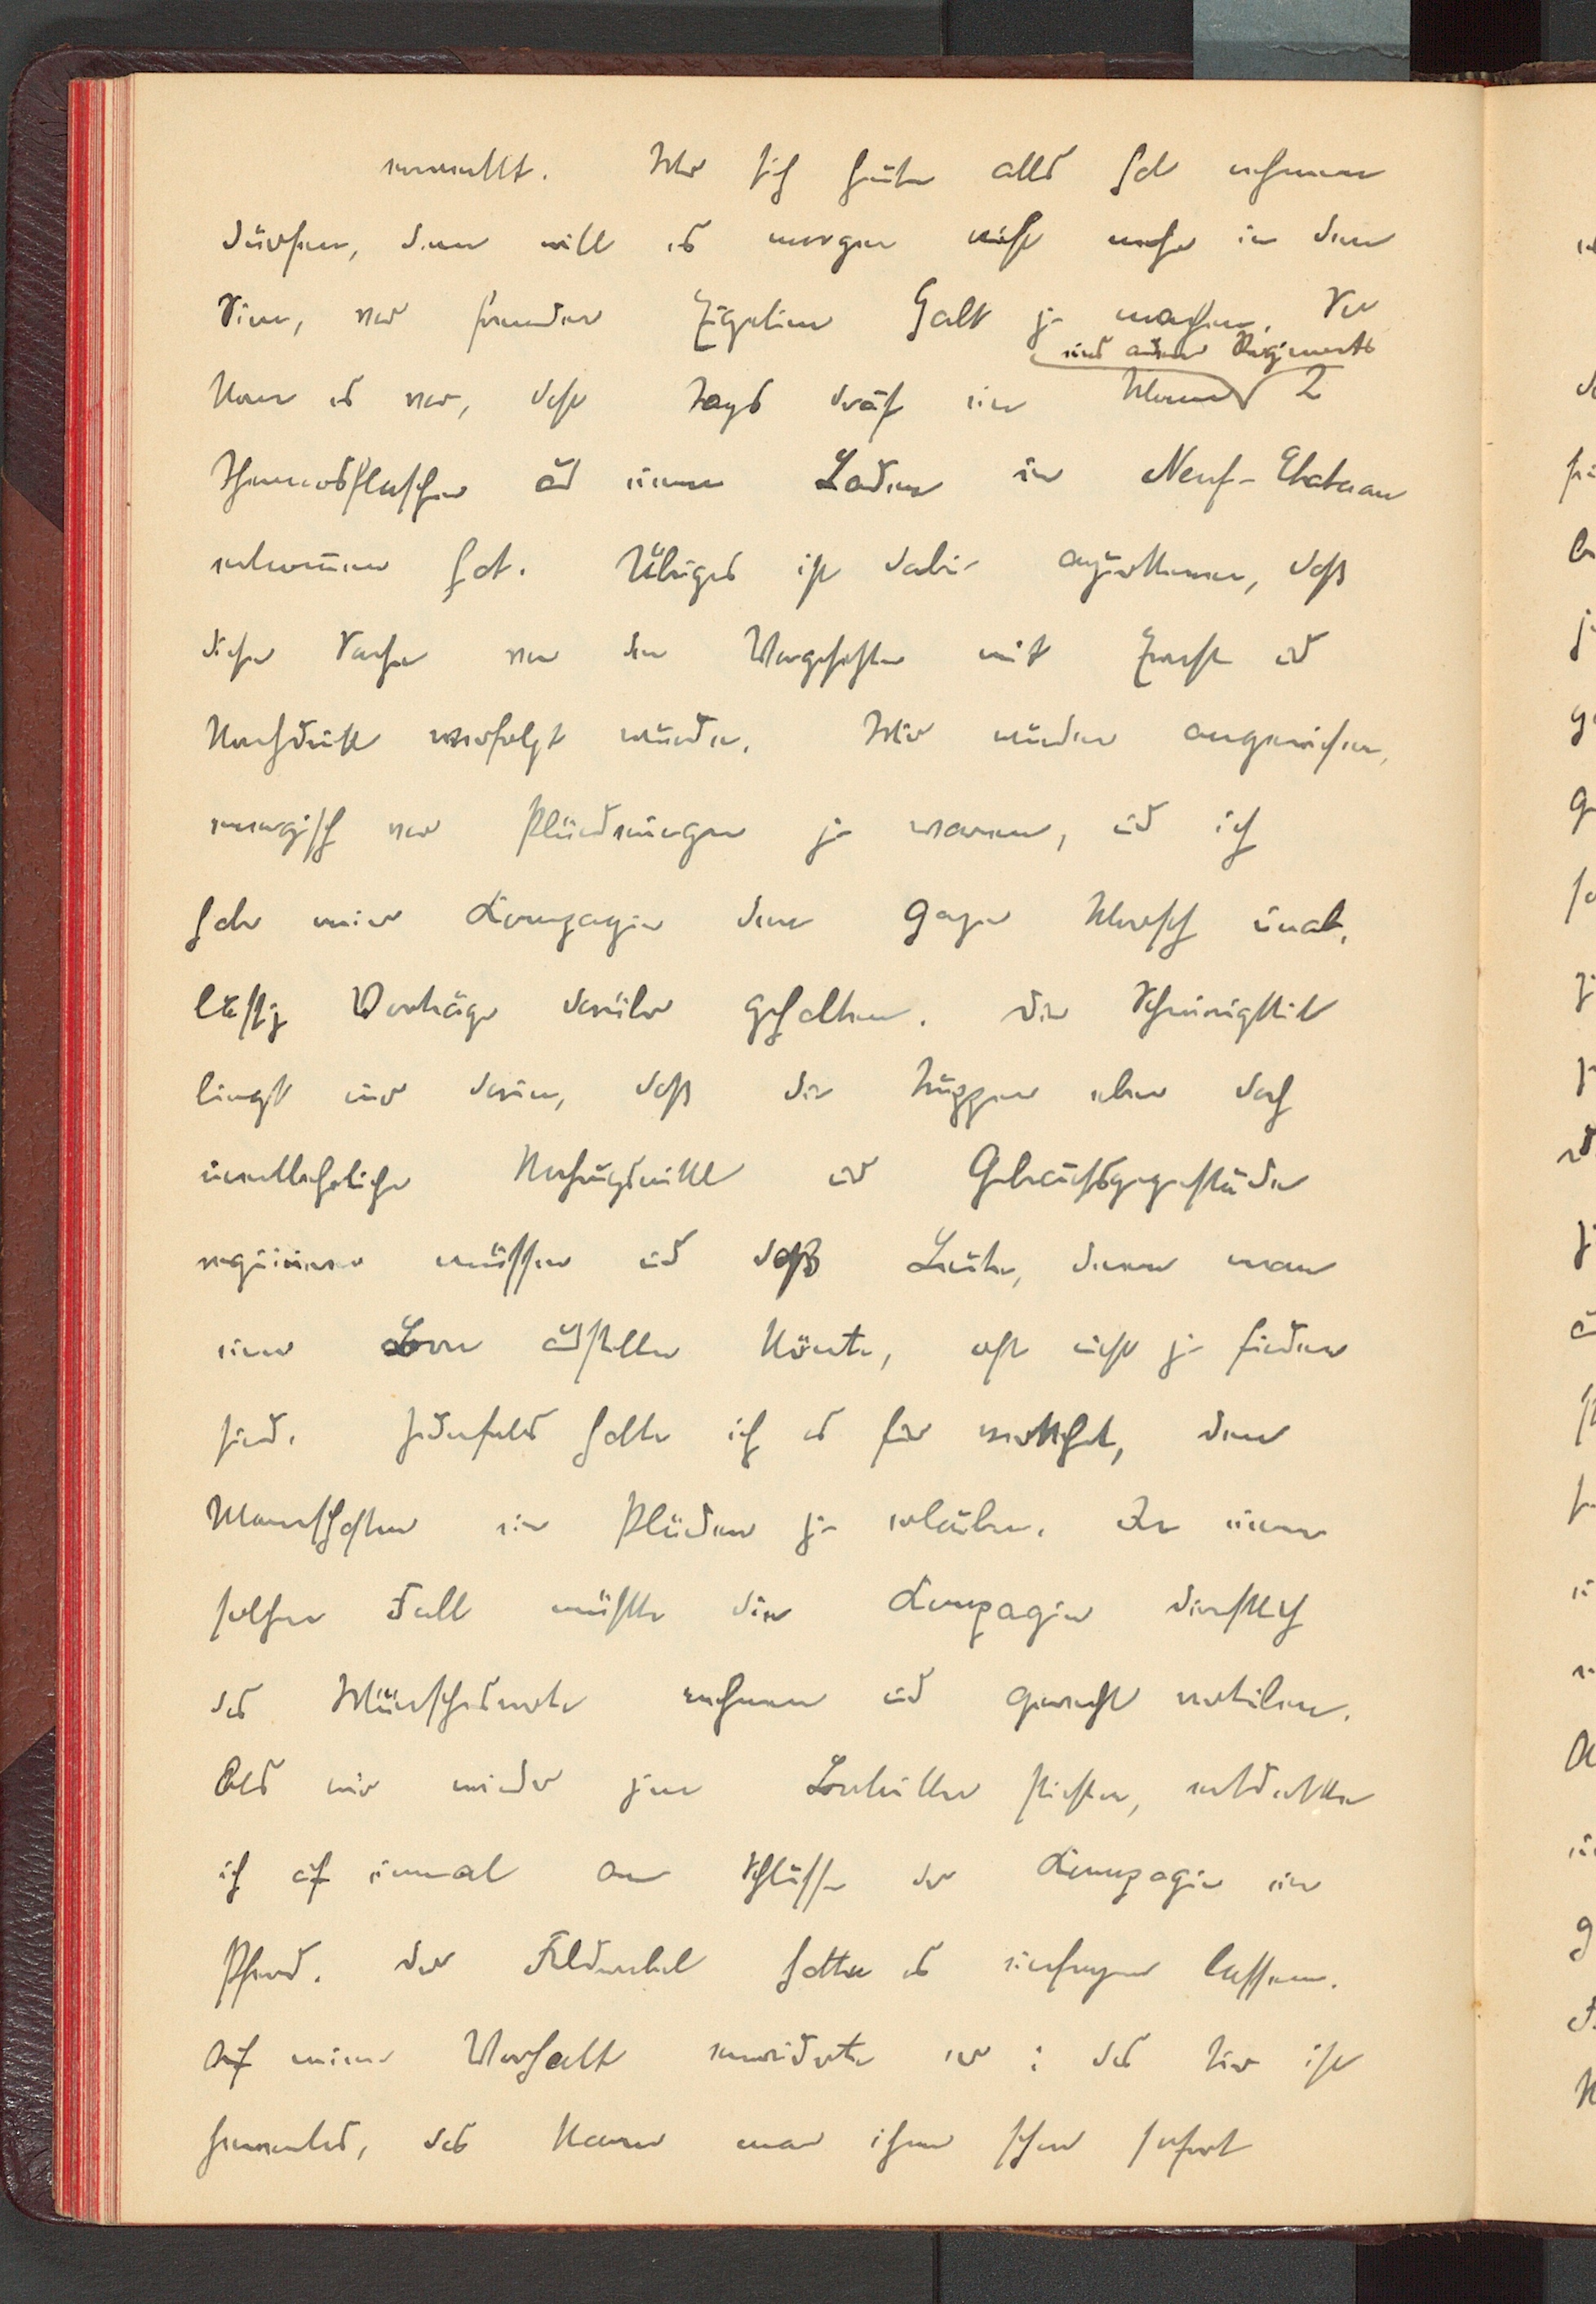 erweckt. Wer sich heute alles hat nehmen
dürfen, dem will es morgen nicht mehr in den
Sinn, vor fremdem Eigentum Halt zu machen. So
kam es vor, daß tags drauf ein Mann eines andern Regiments 2
Thermosflaschen aus einem Laden in Neuf-Chateau
entnommen hat. Übrigens ist dabei anzuerkennen, daß
diese Sache von den Vorgesetzten mit Ernst und
Nachdruck verfolgt wurde. Wir wurden angewiesen,
energisch vor Plünderungen zu warnen, und ich
habe meiner Kompagnie den ganzen Marsch unab-
lässig Vorträge darüber gehalten. Die Schwierigkeit
liegt nur darin, daß die Truppen eben doch
unentbehrliche Nahrungsmittel und Gebrauchsgegenstände
requirieren müssen und daß Leute, denen man
einen Bon ausstellen könnte, oft nicht zu finden
sind. Jedenfalls halte ich es für verkehrt, den
Mannschaften ein Plündern zu erlauben. In einem
solchen Fall müßte die Kompagnie dienstlich
das Wünschenswerte nehmen und gerecht verteilen.
Als wir wieder zum Bataillon stießen, entdeckte
ich auf einmal am Schlusse der Kompagnie ein
Pferd. Der Feldwebel hatte es einfangen lassen.
Auf meinen Vorhalt erwiderte er: das Tier ist
herrenlos, das kann man ihm schon sofort